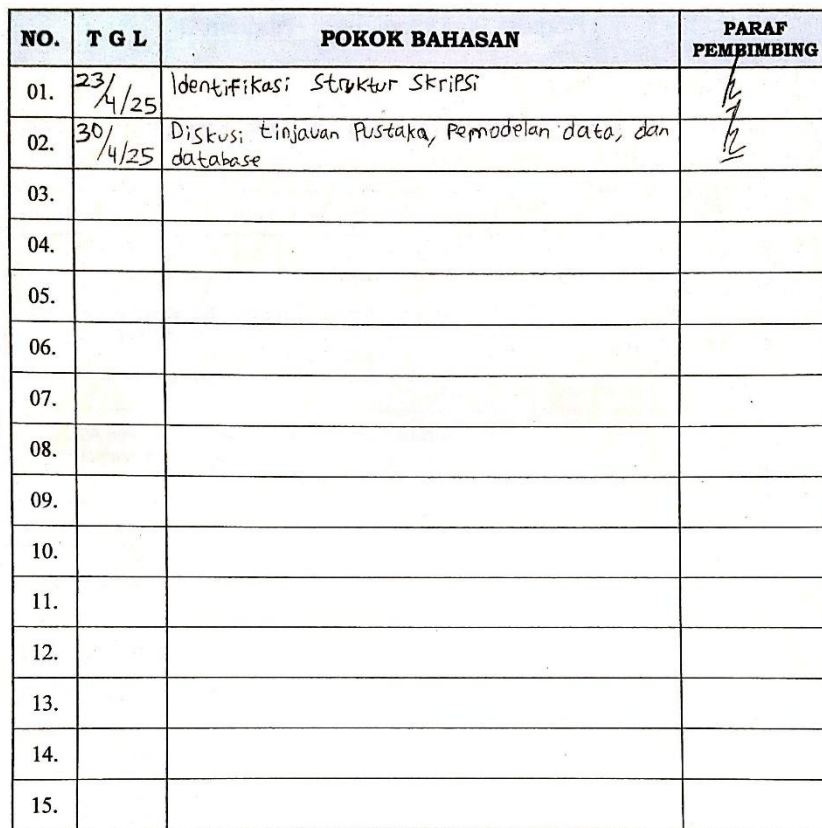 NO. T G L POKOK BAHASAN PARAF PEMBIMBING
01. 23/4/25 Identifikasi Struktur Skripsi
02. 30/4/25 Diskusi tinjauan Pustaka, Pemodelan data, dan
database
03.
04.
05.
06.
07.
08.
09.
10.
11.
12.
13.
14.
15.